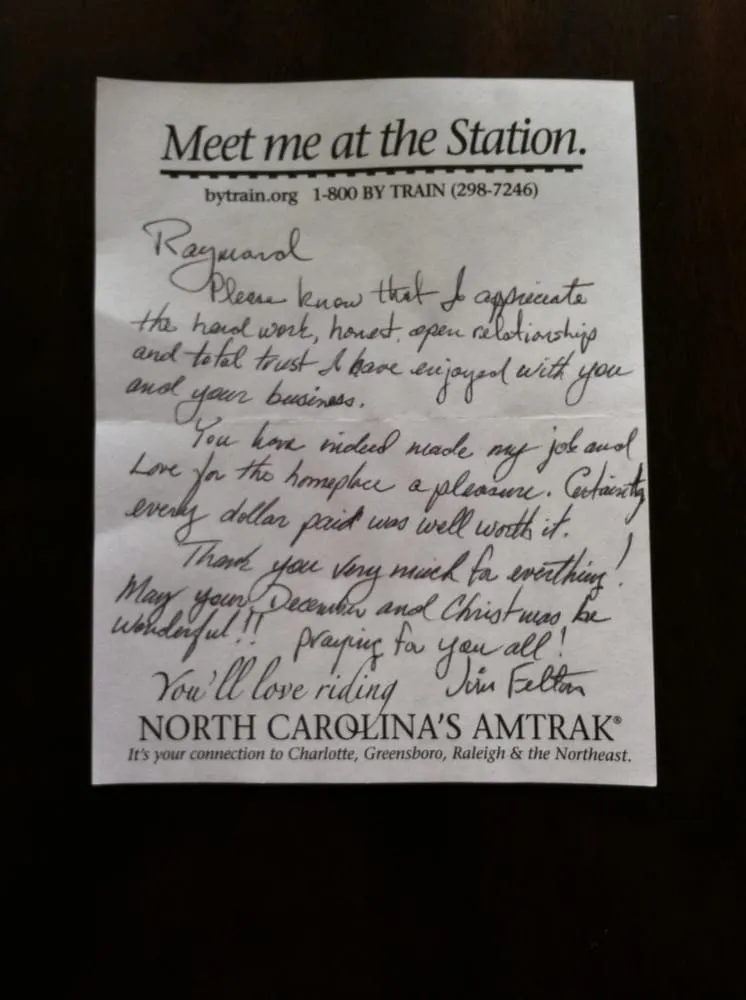 Meet me at the Station.
bytrain.org 1-800 BY TRAIN (298-7246)
Raymond
Please know that I appreciate
the hard work, honest, open relationship
and total trust I have enjoyed with you
and your business.
You have indeed made my job and
Love for the homeplace a pleasure. Certainly
every dollar paid was well worth it.
Thank you very much for everthing!
May your December and Christmas be
wonderful!! praying for you all!
You'll love riding Jim Felton
NORTH CAROLINA'S AMTRAK®
It's your connection to Charlotte, Greensboro, Raleigh & the Northeast.